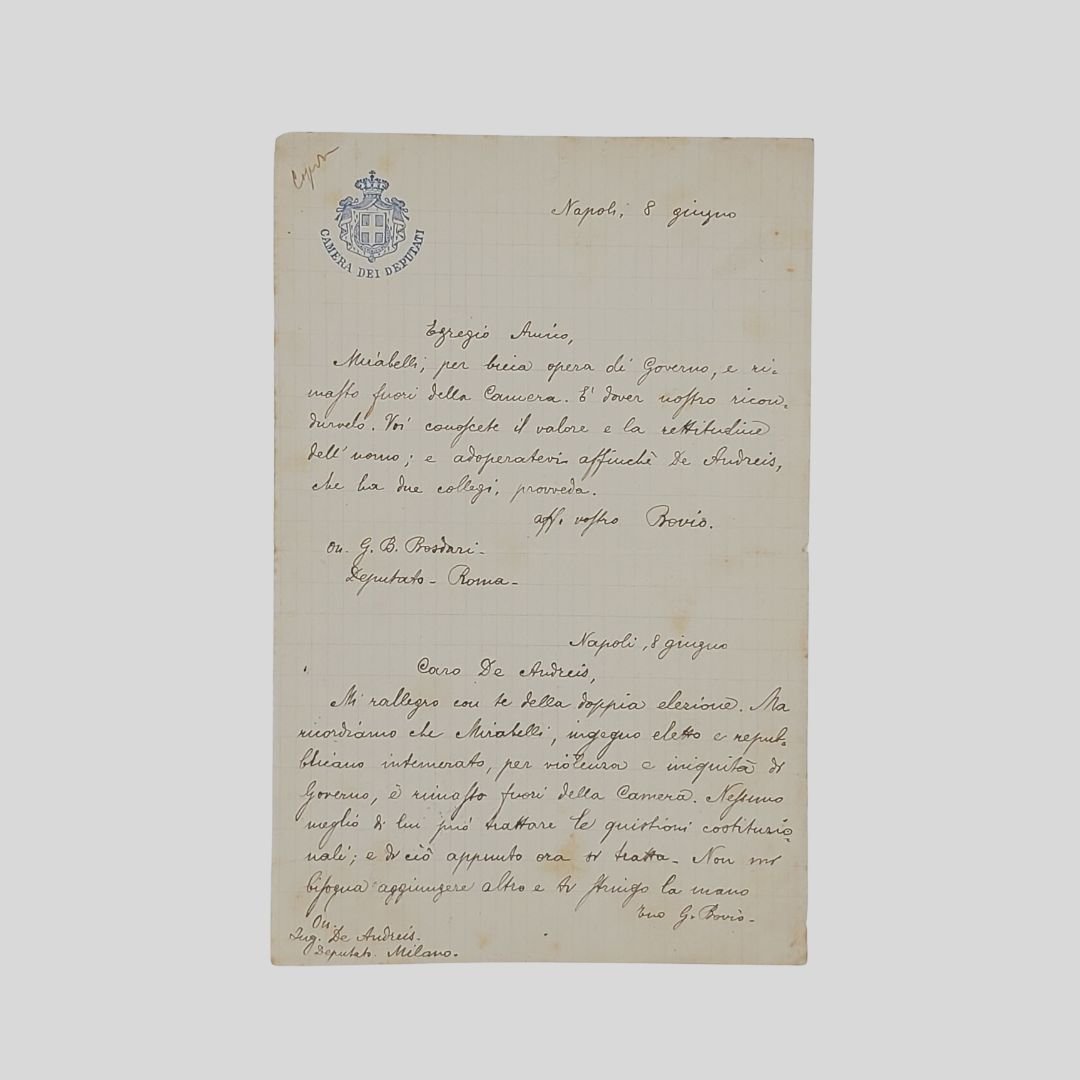 Copia
CAMERA DEI DEPUTATI
Napoli, 8 giugno
Egregio Amico,
Mirabelli, per bieca opera di Governo, e ri-
masto fuori della Camera. E' dover nostro ricon-
durvelo. Voi conoscete il valore e la rettitudine
dell'uomo; e adoperatevi affinchè De Andreis,
che ha due collegi, provveda.
aff. vostro Bovio.
On. G. B. Bosdari-
Deputato - Roma -
Napoli, 8 giugno
Caro De Andreis,
Mi rallegro con te della doppia elezione. Ma
ricordiamo che Mirabelli, ingegno eletto e repub-
blicano intemerato, per violenza e iniquità di
Governo, è rimasto fuori della Camera. Nessuno
meglio di lui può trattare le quistioni costituzio-
nali; e di ciò appunto ora si tratta - Non mi
bisogna aggiungere altro e ti stringo la mano
Tuo G. Bovio-
On.
Ing. De Andreis.
Deputato Milano.